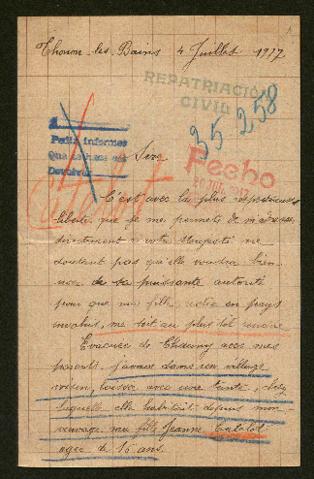 Thonon-les-Bains 4 Juillet 1917
REPATRIACIÓ
CIVIL
35258
Pedir informes
Que se hace
Devolver
Sire
Fecho
JUL 1917
C'est avec la plus respectueuse
liberté que je me permets de m'adresser
directement à votre Majesté ne
doutant pas qu'elle voudra bien
user de sa puissante autorité
pour que ma fille restée en pays
envahis, me soit au plus tôt rendue
Evacuée de Chauny avec mes
parents, j'avais dans un village
voisin, laissée avec une tante, chez
laquelle elle habitait depuis mon
veuvage, ma fille Jeanne Catalot
agée de 15 ans.
Catalot